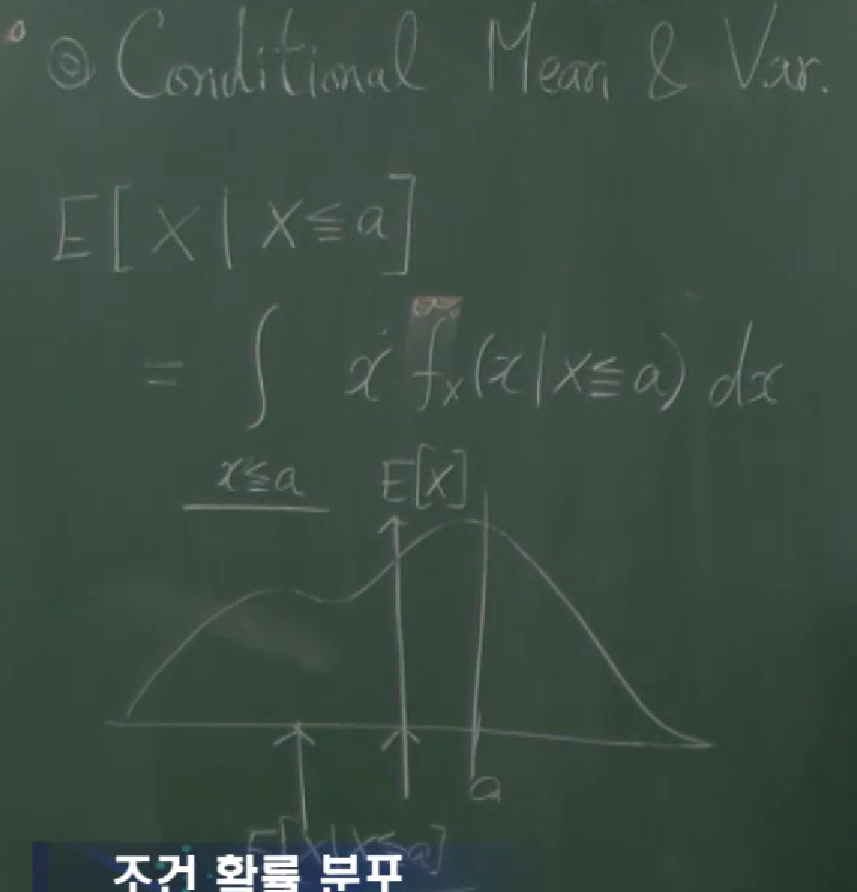 ◎ Conditional Mean & Var.
E[X | X ≦ a]
= ∫ x f_X(x | X ≦ a) dx
x ≦ a
E[X]
a
E[X | X ≦ a]
조건 확률 분포